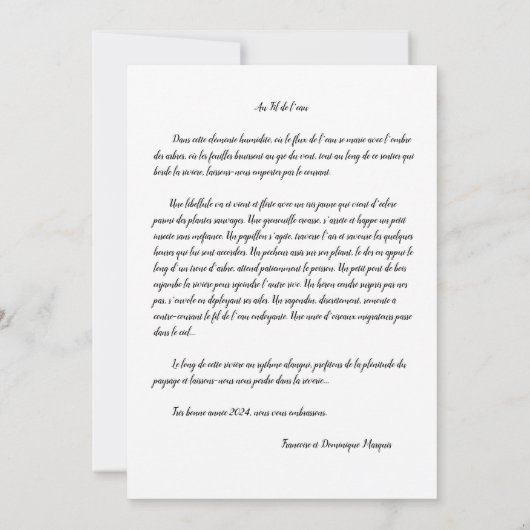 Au Fil de l'eau
Dans cette clémente humidité, où le flux de l'eau se marie avec l'ombre
des arbres, où les feuilles bruissent au gré du vent, tout au long de ce sentier qui
borde la rivière, laissons-nous emporter par le courant.
Une libellule va et vient et flirte avec un iris jaune qui vient d'éclore
parmi des plantes sauvages. Une grenouille coasse, s'arrête et happe un petit
insecte sans méfiance. Un papillon s'agite, traverse l'air et savoure les quelques
heures qui lui sont accordées. Un pêcheur assis sur son pliant, le dos en appui le
long d'un tronc d'arbre, attend patiemment le poisson. Un petit pont de bois
enjambe la rivière pour rejoindre l'autre rive. Un héron cendré surpris par nos
pas, s'envole en déployant ses ailes. Un ragondin, discrètement, remonte à
contre-courant le fil de l'eau ondoyante. Une nuée d'oiseaux migrateurs passe
dans le ciel...
Le long de cette rivière au rythme alangui, profitons de la plénitude du
paysage et laissons-nous nous perdre dans la rêverie...
Très bonne année 2024, nous vous embrassons.
Francoise et Dominique Marquis